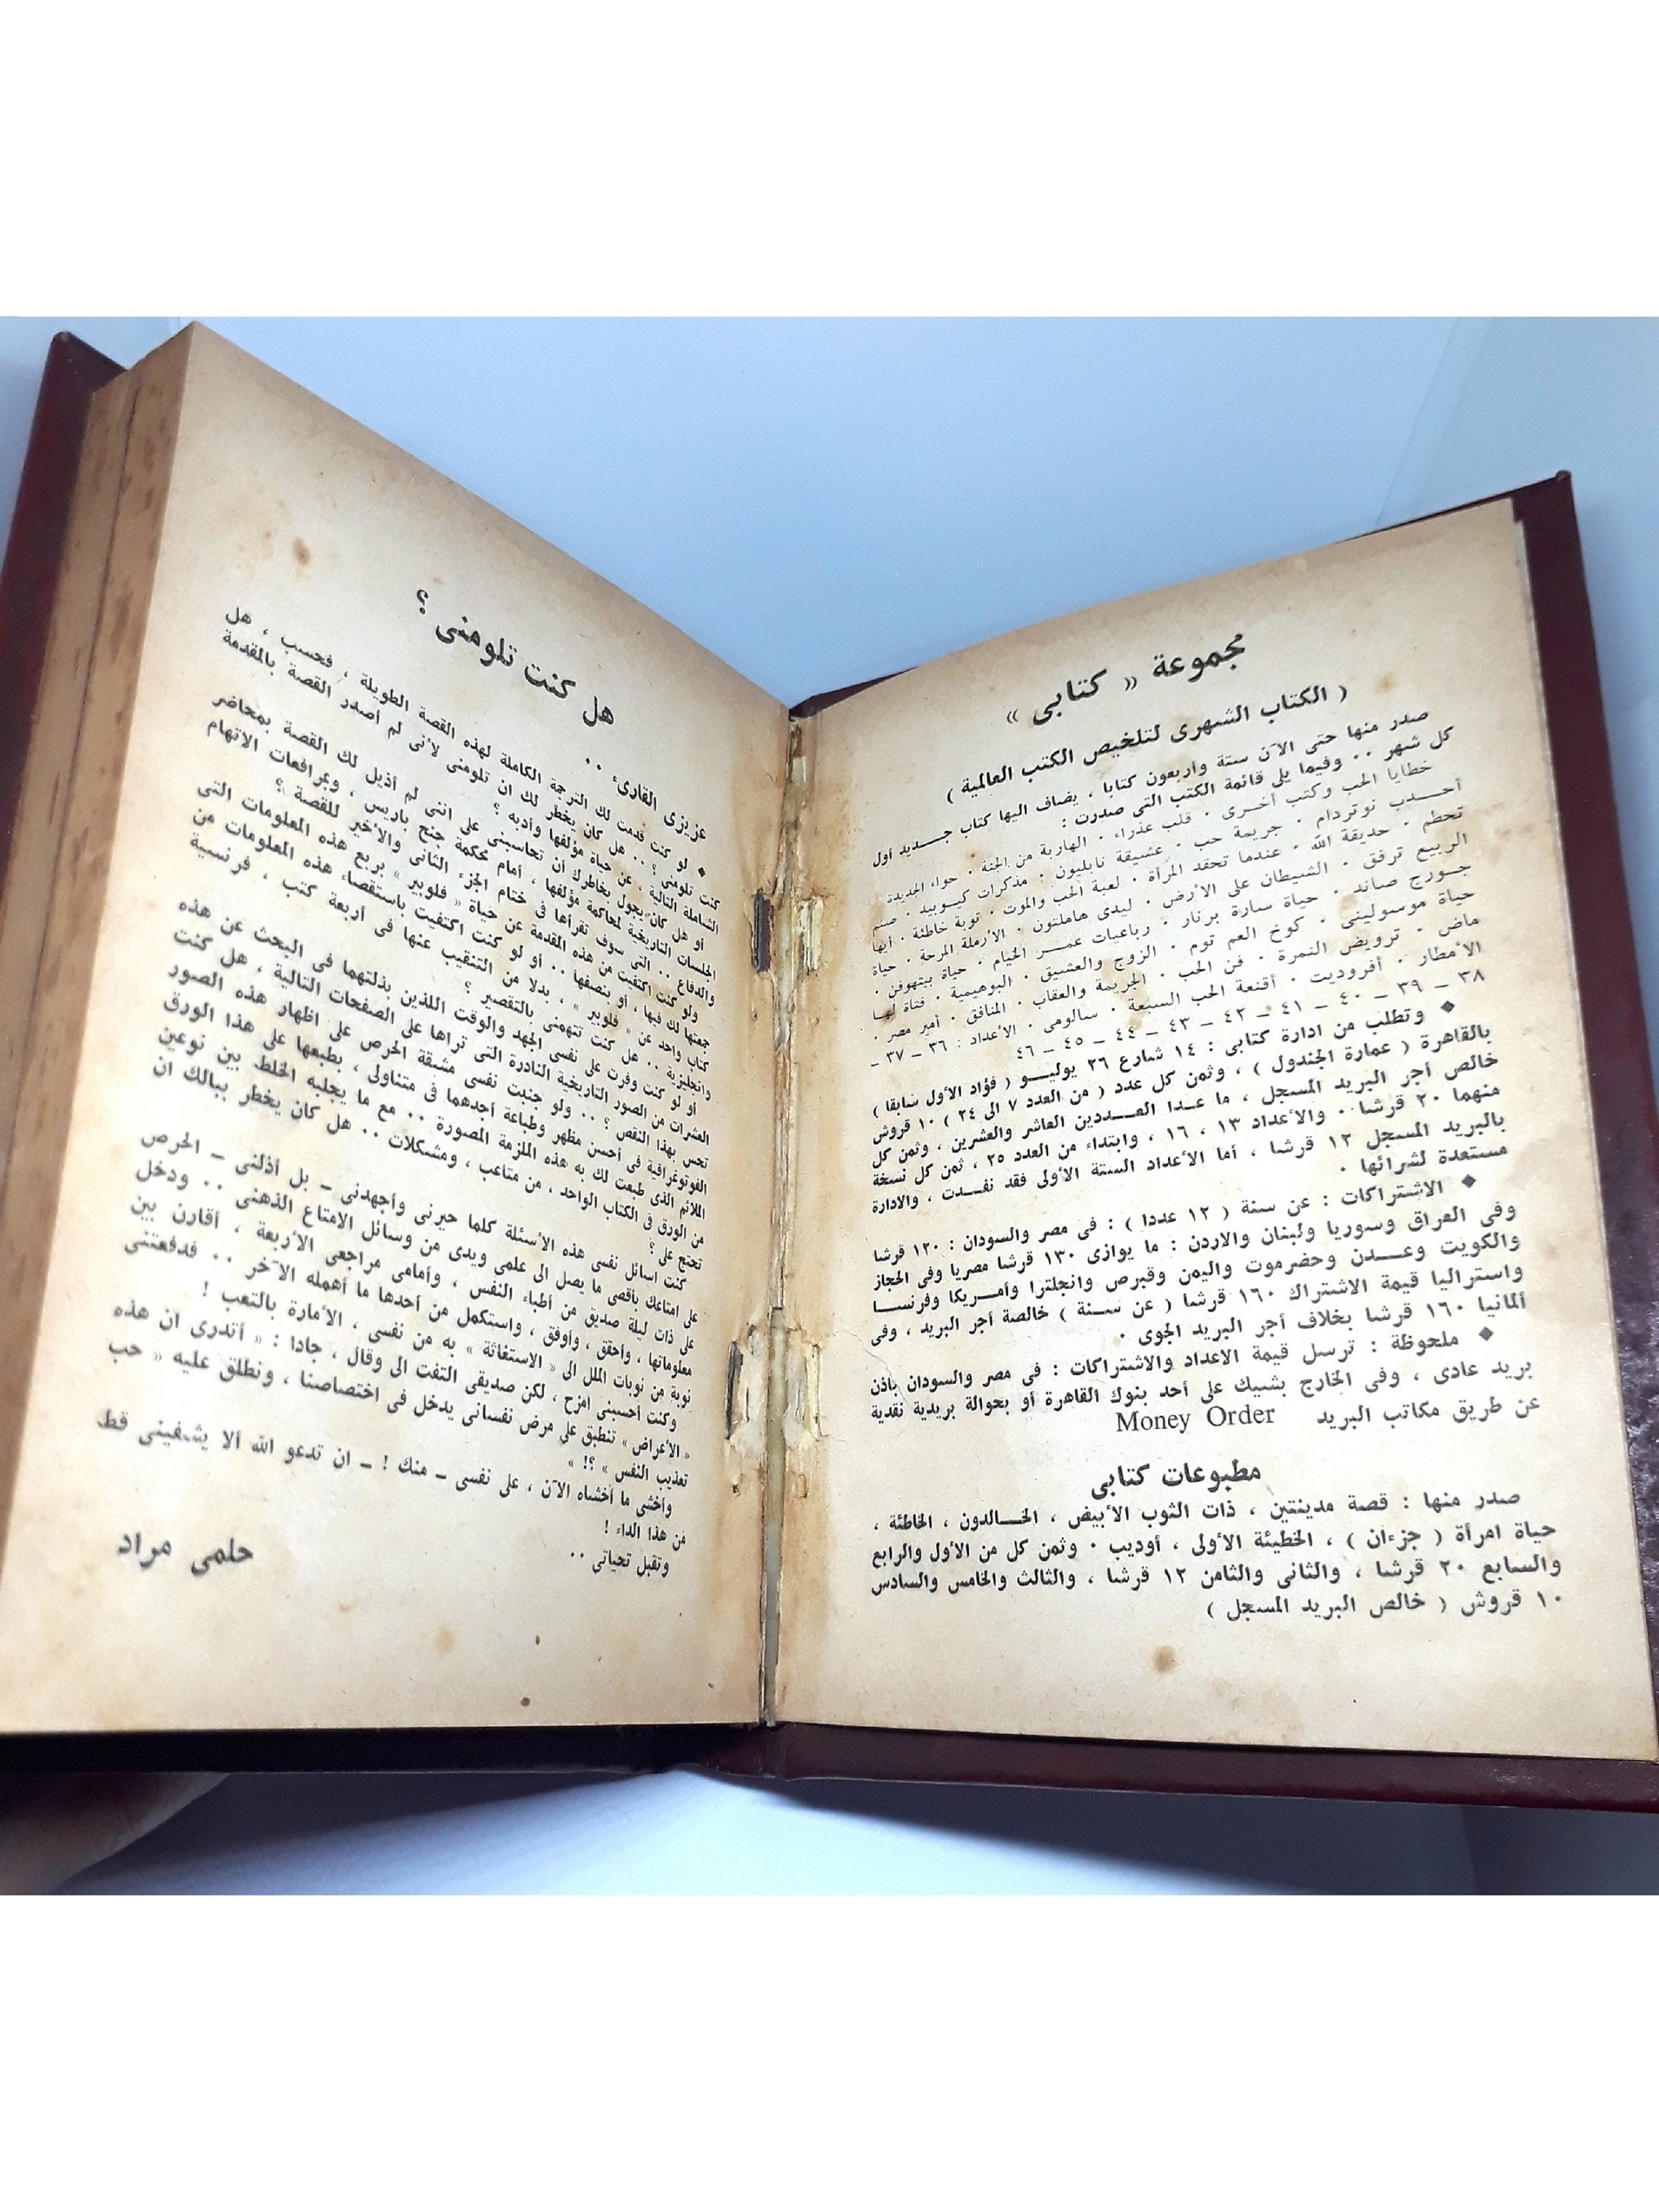 مجموعة « كتابى »
( الكتاب الشهرى لتلخيص الكتب العالمية )
صدر منها حتى الآن ستة وأربعون كتابا ، يضاف اليها كتاب جـــديد أول
كل شهر .. وفيما يلى قائمة الكتب التى صدرت :
خطايا الحب وكتب أخــرى . قلب عذراء . الهاربة من الجنة . حواء الجديدة
أحــــدب نوتردام . جريمة حب . عشيقة نابليون . مذكرات كيــوبيد . صنم
تحطم . حديقة الله . عندما تحقد المرأة . لعبة الحب والموت . توبة خاطئة . أيها
الربيع ترفق . الشيطان على الأرض . ليدى هاملتون . الأرملة المرحة . حياة
جــورج صاند . حياة سارة برنار . رباعيات عمــر الخيام . حياة بيتهوفن .
حياة موسولينى . كوخ العم توم . الزوج والعشيق . البوهيمية . فتاة لهــا
ماض . ترويض النمرة . فن الحب . الجريمة والعقاب . المنافق . أمير مصر .
الأمطار . أفروديت . أقنعة الحب السبعة . سالومى . الأعداد : ٣٦ – ٣٧ –
٣٨ – ٣٩ – ٤٠ – ٤١ – ٤٢ – ٤٣ – ٤٤ – ٤٥ – ٤٦
◆ وتطلب من ادارة كتابى : ١٤ شارع ٢٦ يوليــــو ( فؤاد الأول سابقا )
بالقاهرة ( عمارة الجندول ) ، وثمن كل عدد ( من العدد ٧ الى ٢٤ ) ١٠ قروش
خالص أجر البريد المسجل ، ما عــدا العــــددين العاشر والعشرين ، وثمن كل
منهما ٢٠ قرشا .. والأعداد ١٣ ، ١٦ ، وابتداء من العدد ٢٥ ، ثمن كل نسخة
بالبريد المسجل ١٢ قرشا ، أما الأعداد الستة الأولى فقد نفـــدت ، والادارة
مستعدة لشرائها .
◆ الاشتراكات : عن سنة ( ١٢ عددا ) : فى مصر والسودان : ١٢٠ قرشا
وفى العراق وسوريا ولبنان والاردن : ما يوازى ١٣٠ قرشا مصريا وفى الحجاز
والكويت وعـــدن وحضرموت واليمن وقبرص وانجلترا وأمــريكا وفرنســـا
واستراليا قيمة الاشتراك ١٦٠ قرشا ( عن ســنة ) خالصة أجر البريد ، وفى
ألمانيا ١٦٠ قرشا بخلاف أجر البريد الجوى .
◆ ملحوظة : ترسل قيمة الاعداد والاشتراكات : فى مصر والسودان باذن
بريد عادى ، وفى الخارج بشيك على أحد بنوك القاهرة أو بحوالة بريدية نقدية
عن طريق مكاتب البريد Money Order
مطبوعات كتابى
صدر منها : قصة مدينتين ، ذات الثوب الأبيض ، الخـــالدون ، الخاطئة ،
حياة امرأة ( جزءان ) ، الخطيئة الأولى ، أوديب . وثمن كل من الأول والرابع
والسابع ٢٠ قرشا ، والثانى والثامن ١٢ قرشا ، والثالث والخامس والسادس
١٠ قروش ( خالص البريد المسجل )
هل كنت تلومنى ؟
عزيزى القارىء ..
◆ لو كنت قدمت لك الترجمة الكاملة لهذه القصة الطويلة ، فحسب ، هل
كنت تلومنى ؟ .. هل كان يخطر لك ان تلومنى لأنى لم أصدر القصة بالمقدمة
الشاملة التالية ، عن حياة مؤلفها وأدبه ؟
أو هل كان يجول بخاطرك أن تحاسبنى على اننى لم أذيل لك القصة بمحاضر
الجلسات التاريخية لمحاكمة مؤلفها ، أمام محكمة جنح باريس ، وبمرافعات الاتهام
والدفاع .. التى سوف تقرأها فى ختام الجزء الثانى والأخير للقصة ؟
ولو كنت اكتفيت من هذه المقدمة عن حياة « فلوبير » بربع هذه المعلومات التى
جمعتها لك فيها ، أو بنصفها .. أو لو كنت اكتفيت باستقصاء هذه المعلومات من
كتاب واحد عن « فلوبير » ، بدلا من التنقيب عنها فى أربعة كتب ، فرنسية
وانجليزية .. هل كنت تتهمنى بالتقصير ؟
أو لو كنت وفرت على نفسى الجهد والوقت اللذين بذلتهما فى البحث عن هذه
العشرات من الصور التاريخية النادرة التى تراها على الصفحات التالية ، هل كنت
تحس بهذا النقص ؟ .. ولو جنبت نفسى مشقة الحرص على اظهار هذه الصور
الفوتوغرافية فى أحسن مظهر وطباعة أجدهما فى متناولى ، بطبعها على هذا الورق
الملائم الذى طبعت لك به هذه الملزمة المصورة .. مع ما يجلبه الخلط بين نوعين
من الورق فى الكتاب الواحد ، من متاعب ، ومشكلات .. هل كان يخطر ببالك ان
تحتج على ؟
كنت اسائل نفسى هذه الأسئلة كلما حيرنى وأجهدنى – بل أذلنى – الحرص
على امتاعك بأقصى ما يصل الى علمى ويدى من وسائل الامتاع الذهنى .. ودخل
على ذات ليلة صديق من أطباء النفس ، وأمامى مراجعى الأربعة ، أقارن بين
معلوماتها ، وأحقق ، وأوفق ، واستكمل من أحدها ما أهمله الآخر .. فدفعتنى
نوبة من نوبات الملل الى « الاستغاثة » به من نفسى ، الأمارة بالتعب !
وكنت أحسبنى امزح ، لكن صديقى التفت الى وقال ، جادا : « أتدرى ان هذه
« الأعراض » تنطبق على مرض نفسانى يدخل فى اختصاصنا ، ونطلق عليه « حب
تعذيب النفس » ؟! »
وأخشى ما أخشاه الآن ، على نفسى – منك ! – ان تدعو الله ألا يشفينى قط
من هذا الداء !
وتقبل تحياتى ..
حلمى مراد